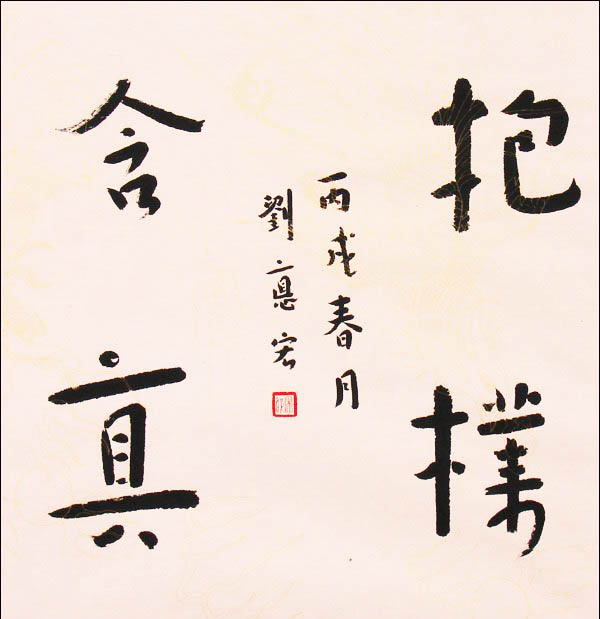 抱樸
丙戌春月
劉惪宏
含真